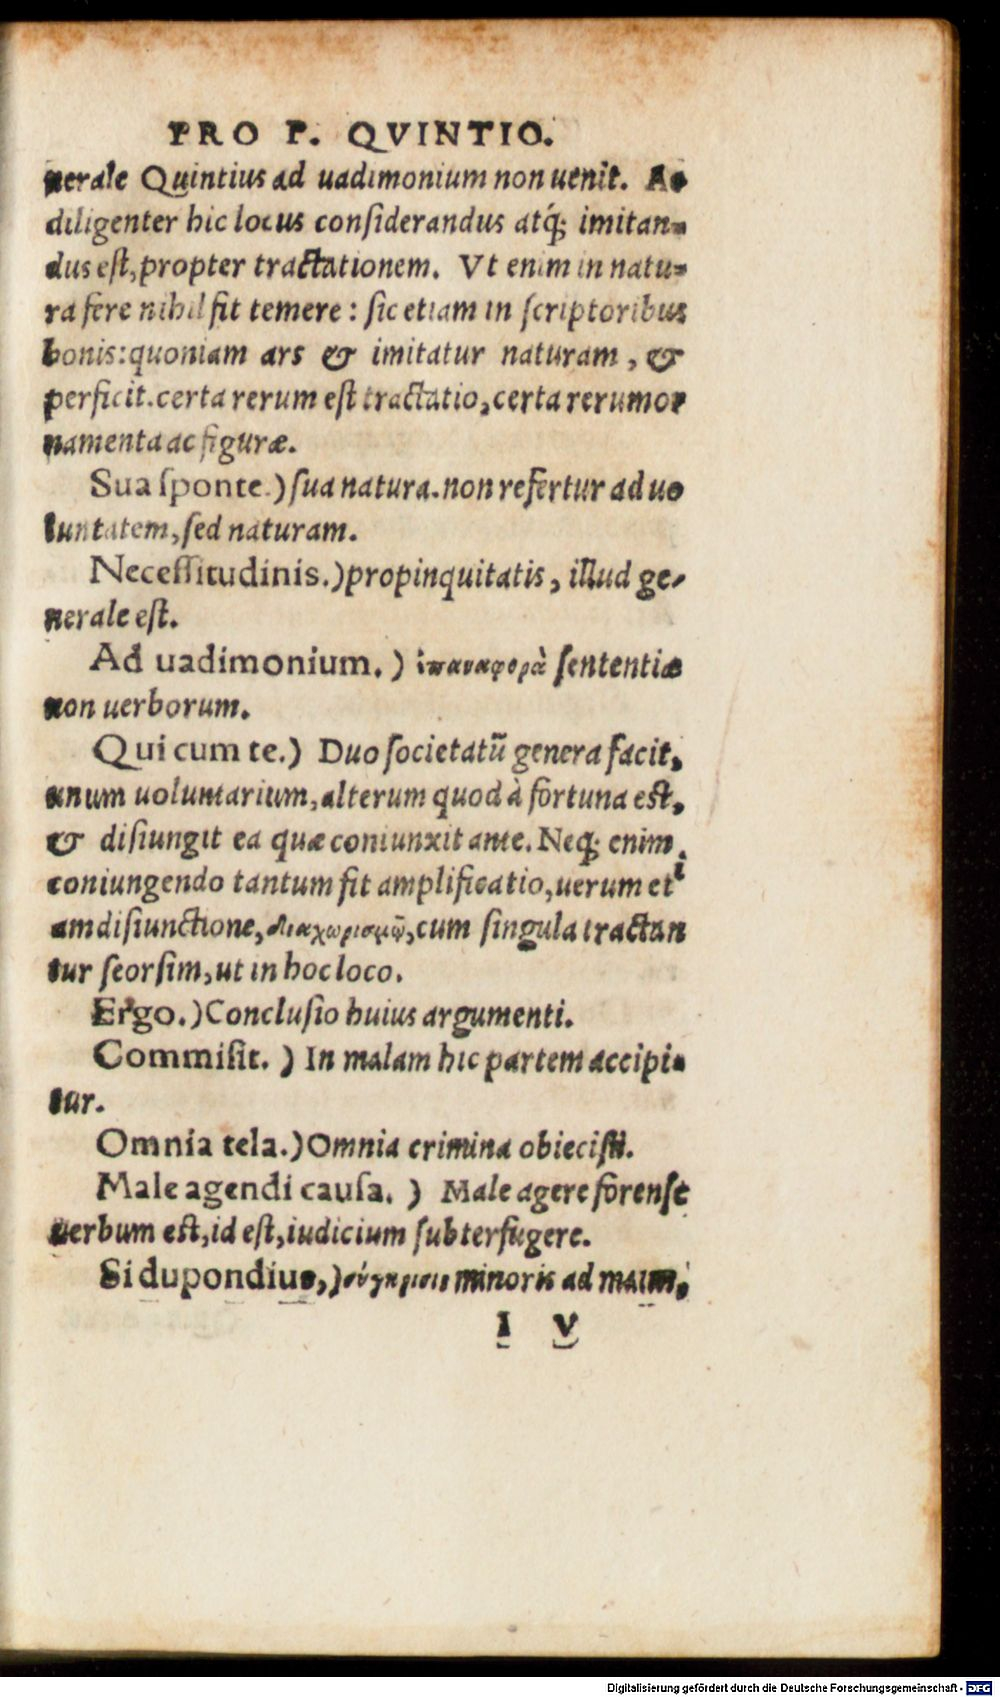 PRO P. QVINTIO.
nerale Quintius ad uadimonium non uenit. Ac
diligenter hic locus considerandus atq́; imitan-
dus est, propter tractationem. Vt enim in natu-
ra fere nihil fit temere: sic etiam in scriptoribus
bonis: quoniam ars & imitatur naturam, &
perficit. certa rerum est tractatio, certa rerum or
namenta ac figuræ.
Sua sponte.) sua natura. non refertur ad uo
luntatem, sed naturam.
Necessitudinis.) propinquitatis, illud ge-
nerale est.
Ad uadimonium.) ἐπαναφορὰ sententiæ
non uerborum.
Qui cum te.) Duo societatū genera facit,
unum uoluntarium, alterum quod à fortuna est,
& disiungit ea quæ coniunxit ante. Neq; enim
coniungendo tantum fit amplificatio, uerum eti
am disiunctione, διαχωρισμῷ, cum singula tractan
tur seorsim, ut in hoc loco.
Ergo.) Conclusio huius argumenti.
Commisit.) In malam hic partem accipi-
tur.
Omnia tela.) Omnia crimina obiecisti.
Male agendi causa.) Male agere forense
uerbum est, id est, iudicium subterfugere.
Si dupondius,) σύγκρισις minoris ad maius,
I V
Digitalisierung gefördert durch die Deutsche Forschungsgemeinschaft - DFG